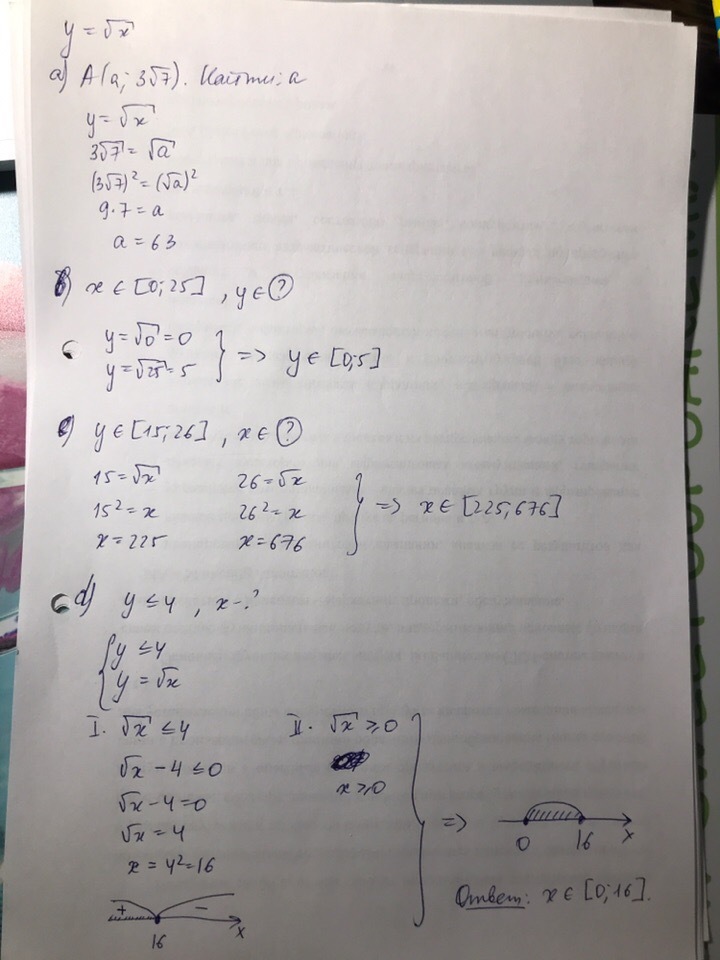 y = √x
a) A(a; 3√7). Найти: a
y = √x
3√7 = √a
(3√7)² = (√a)²
9·7 = a
a = 63
b) x ∈ [0; 25], y ∈ ?
y = √0 = 0
y = √25 = 5
} => y ∈ [0; 5]
c) y ∈ [15; 26], x ∈ ?
15 = √x 26 = √x
15² = x 26² = x
x = 225 x = 676
} => x ∈ [225; 676]
d) y ≤ 4, x - ?
{ y ≤ 4
y = √x
I. √x ≤ 4 II. √x ≥ 0
√x - 4 ≤ 0
x ≥ 0
√x - 4 = 0
√x = 4
x = 4² = 16
} =>
0 16 x
+ −
16 x
Ответ: x ∈ [0; 16].